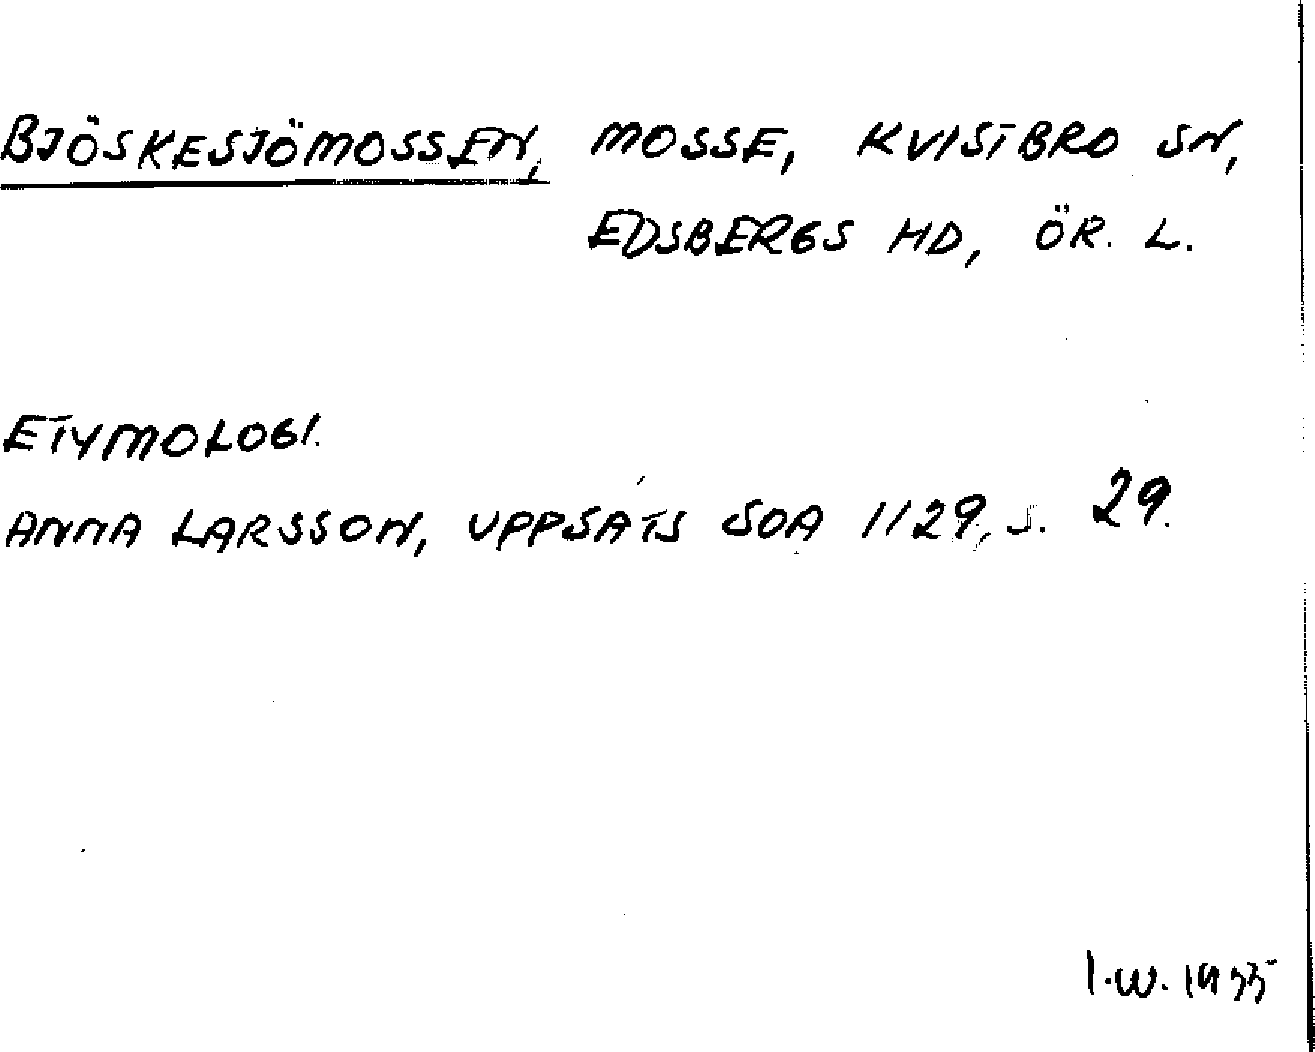 BJÖSKESJÖMOSSEN, MOSSE, KVISTBRO SN,
EDSBERGS HD, ÖR. L.
ETYMOLOGI.
ANNA LARSSON, UPPSATS SOA 1129, S. 29.
I.W.